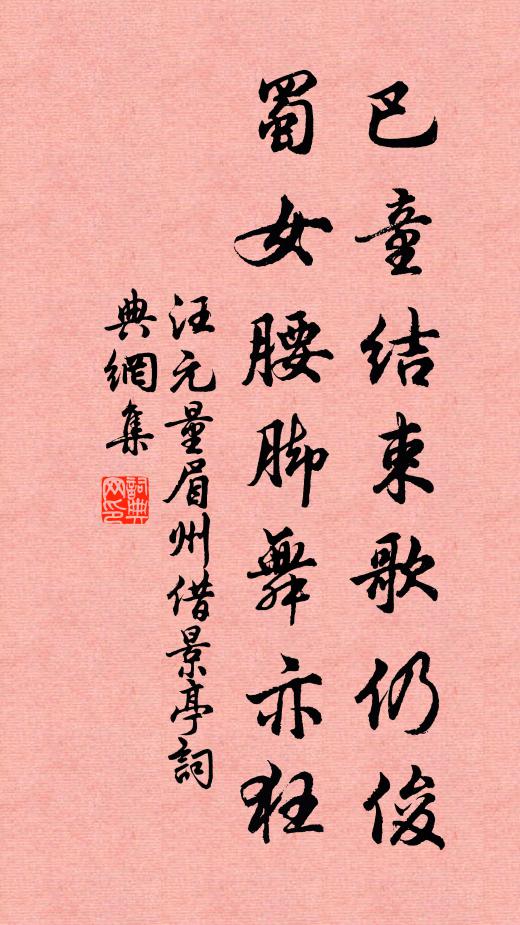 巴童结束歌仍俊
蜀女腰脚舞亦狂
汪元量眉州借景亭詞
典網集
詞典网印